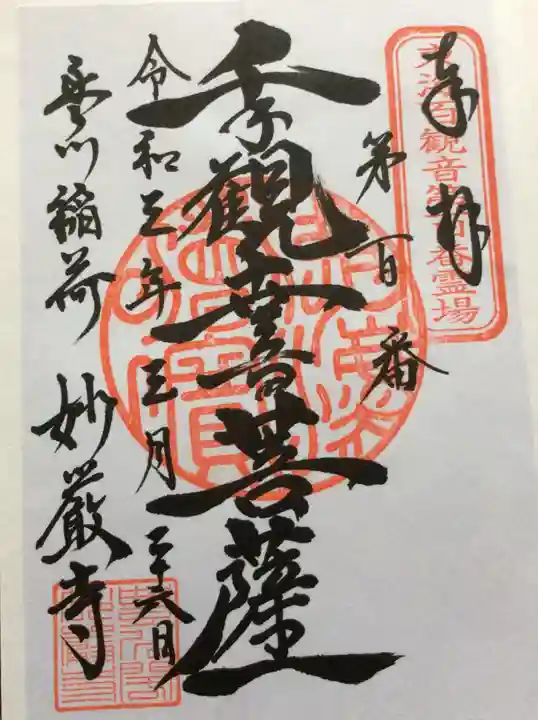 東海百観音第百番霊場
奉拝
第百番
千手觀音菩薩
令和三年三月二十六日
豊川稲荷 妙厳寺